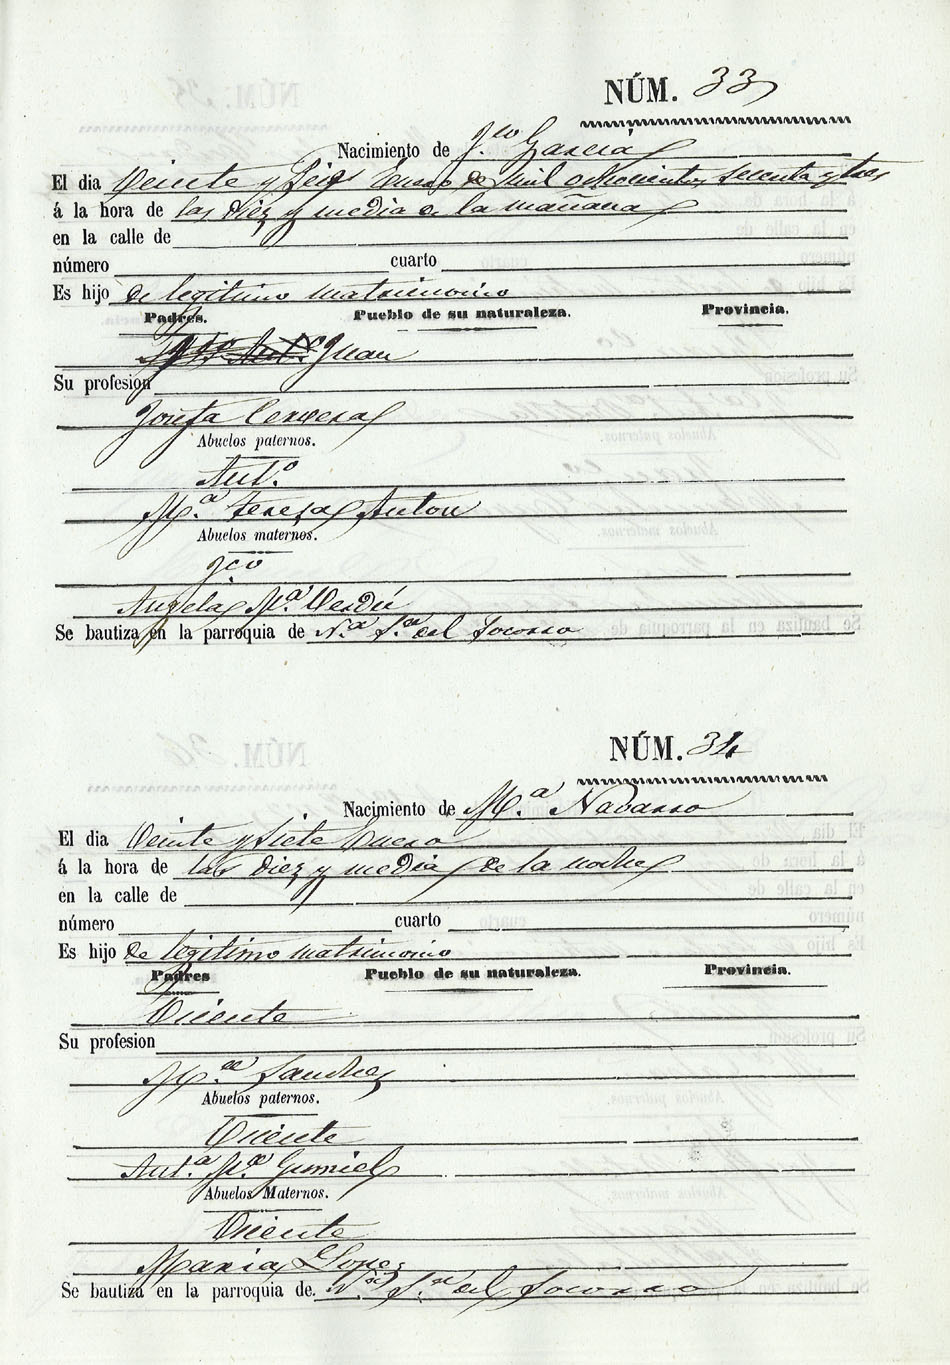 NÚM. 33
Nacimiento de Fco García
El dia Veinte y Seis Enero de mil ochocientos setenta y tres
á la hora de las diez y media de la mañana
en la calle de
número cuarto
Es hijo de legitimo matrimonio
Padres. Pueblo de su naturaleza. Provincia.
Juan
Su profesion
Josefa Cervera
Abuelos paternos.
Ant.o
M.a Teresa Anton
Abuelos maternos.
Fco
Angela M.a Verdú
Se bautiza en la parroquia de N.a S.ra del Socorro
NÚM. 34
Nacimiento de M.a Navarro
El dia Veinte y Siete Enero
á la hora de las diez y media de la noche
en la calle de
número cuarto
Es hijo de legitimo matrimonio
Padres Pueblo de su naturaleza. Provincia.
Vicente
Su profesion
M.a Sanchez
Abuelos paternos.
Vicente
Ant.a M.a Gumiel
Abuelos Maternos.
Vicente
Maria Lopez
Se bautiza en la parroquia de. N.a S.ra del Socorro